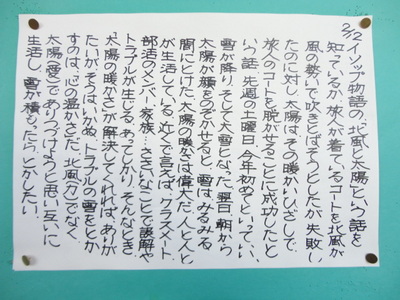 2/12 イソップ物語の「北風と太陽」という話を
知っているか。旅人が着ているコートを北風が
風の勢いで吹きとばそうとしたが、失敗し
たのに対し、太陽は、その暖かい日ざしで、
旅人のコートを脱がせることに成功したと
いう話。先週の土曜日、今年初めてといっていい、
雪が降り、そして大雪となった。翌日、朝から
太陽が顔をのぞかせると、雪はみるみる
間にとけた。太陽の暖かさは偉大だ。人と人と
が生活している。近くで言えば、クラスメート、
部活のメンバー、家族…。ささいなことで誤解や
トラブルが生じる。あってしかり。そんなとき、
「太陽の暖かさ」が解決してくれれば、ありが
たいが、そうはいかぬ。トラブルの雪をとか
すのは、「心の温かさ」だ。北風(人)でなく、
太陽(愛)でありつづけようと思い、互いに
生活し、雪が積もったら、とかしたい。